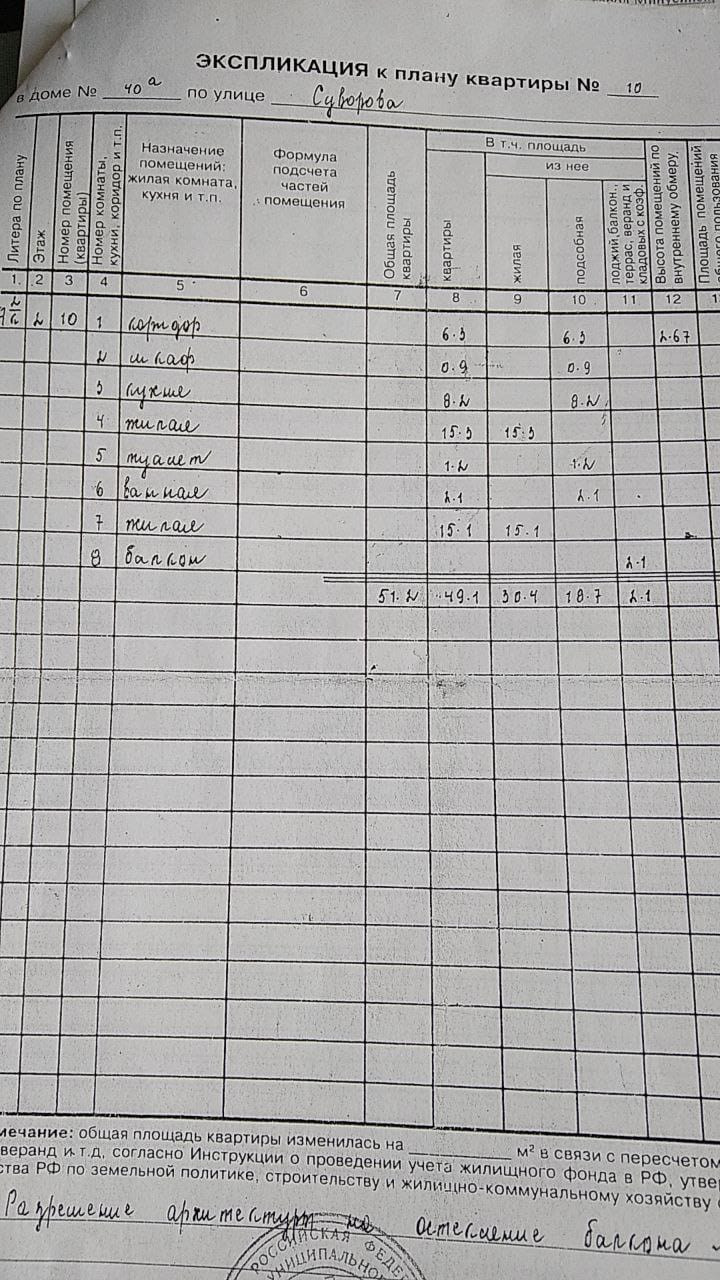 ЭКСПЛИКАЦИЯ к плану квартиры № 10
в доме № 40 а по улице Суворова
Литера по плану
Этаж
Номер помещения (квартиры)
Номер комнаты, кухни, коридор и т.п.
Назначение помещений: жилая комната, кухня и т.п.
Формула подсчета частей помещения
Общая площадь квартиры
В т.ч. площадь
из нее
квартиры
жилая
подсобная
лоджий, балкон., террас, веранд и кладовых с коэф.
Высота помещений по внутреннему обмеру,
Площадь помещений общего пользования
1. 2 3 4 5 6 7 8 9 10 11 12
2 10 1 коридор 6.3 6.3 2.67
2 шкаф 0.9 0.9
3 кухня 8.2 8.2
4 жилая 15.3 15.3
5 туалет 1.2 1.2
6 ванная 2.1 2.1
7 жилая 15.1 15.1
8 балкон 2.1
51.2 49.1 30.4 18.7 2.1
мечание: общая площадь квартиры изменилась на м² в связи с пересчетом
веранд и т.д, согласно Инструкции о проведении учета жилищного фонда в РФ, утвер
ства РФ по земельной политике, строительству и жилищно-коммунальному хозяйству
Разрешение архитектуры на остекление балкона
РОССИЙСКАЯ ФЕДЕ
МУНИЦИПАЛЬНО